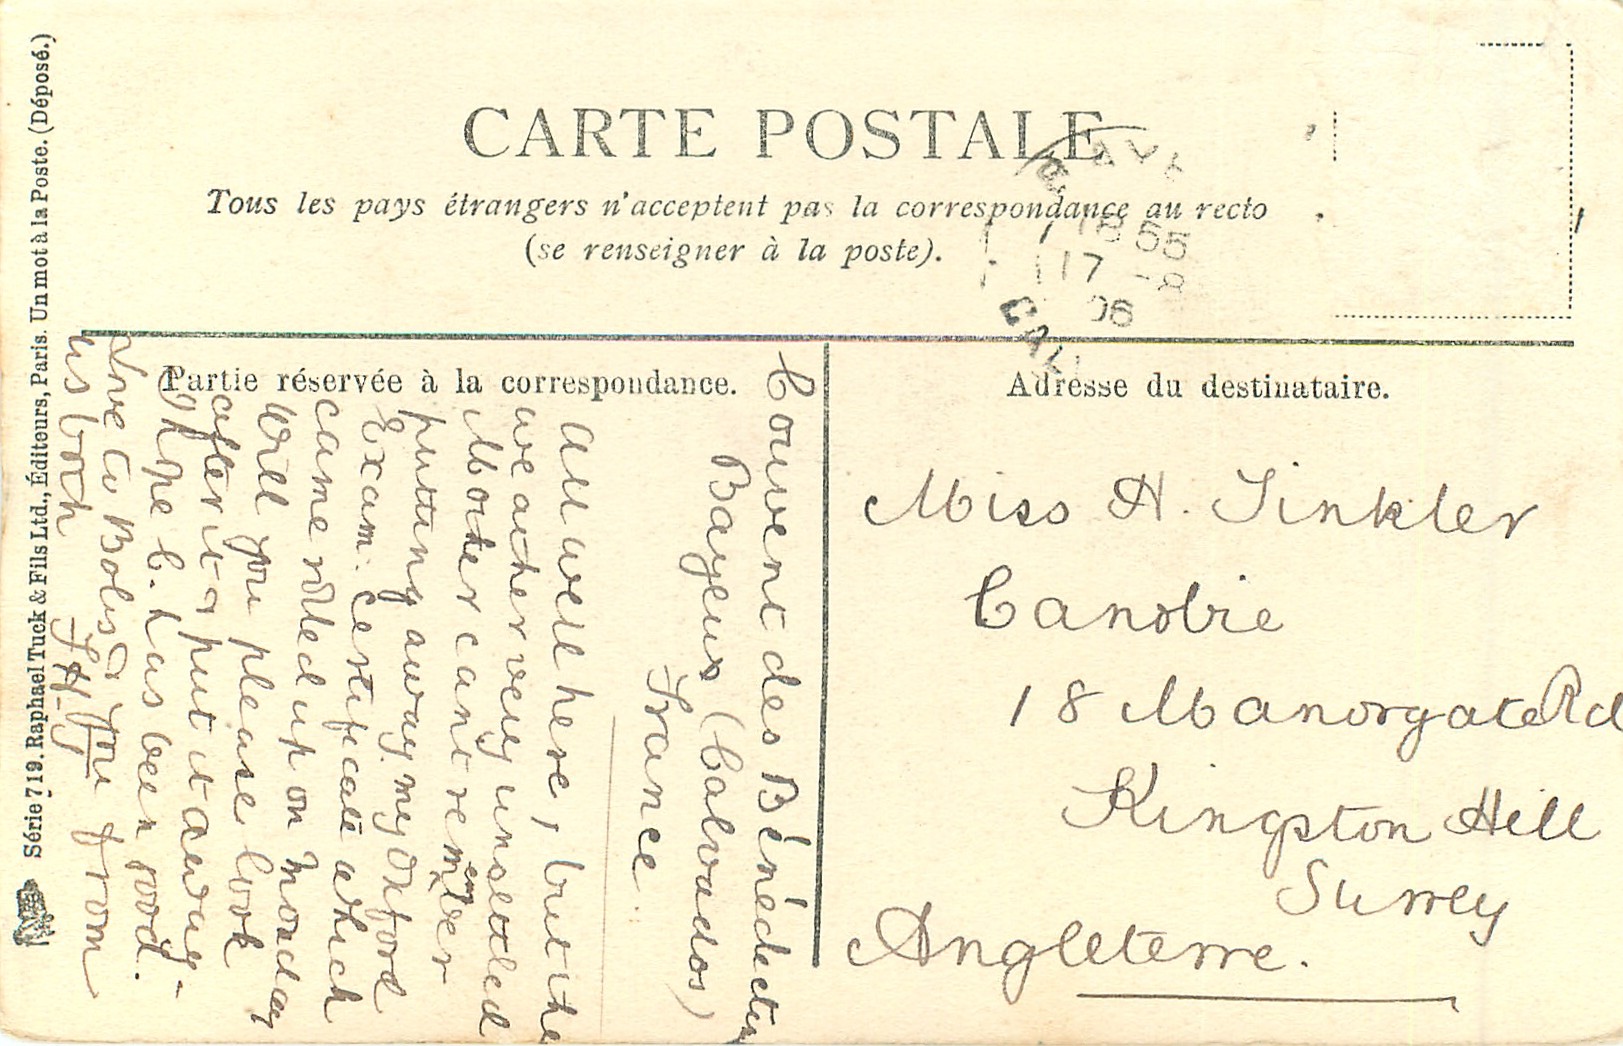 CARTE POSTALE
Tous les pays étrangers n'acceptent pas la correspondance au recto
(se renseigner à la poste).
18 55
17 -8
06
Partie réservée à la correspondance.
Adresse du destinataire.
Couvent des Bénédectin
Bayeux (Calvados)
France.
All well here, but the
weather very unsettled
Moter cant remember
putting away my Oxford
Exam. Certificate which
came rolled up on Monday
Will you please look
after it & put it away-
I hope b. has been good.
Love to Bolis & you from
us both F.H.J
Miss H. Tinkler
Canobie
18 Manorgate Rd
Kingston Hill
Surrey
Angleterre.
Série 719. Raphael Tuck & Fils Ltd., Éditeurs, Paris. Un mot à la Poste. (Déposé.)